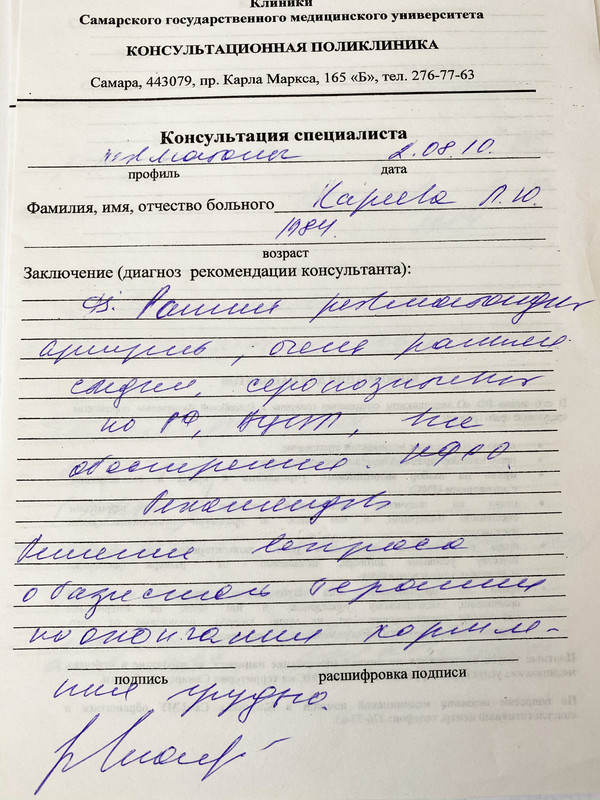 Клиники
Самарского государственного медицинского университета
КОНСУЛЬТАЦИОННАЯ ПОЛИКЛИНИКА
Самара, 443079, пр. Карла Маркса, 165 «Б», тел. 276-77-63
Консультация специалиста
2.08.10.
профиль дата
Фамилия, имя, отчество больного Кареева Л. Ю.
1984.
возраст
Заключение (диагноз рекомендации консультанта):
Ds. Ранний ревматоидн
артрит, очень ранняя
стадия, серопозитивн
по РФ, АЦЦП, вне
обострения.
Рекомендов
решение вопроса
о базисной терапии
по окончании кормле-
подпись расшифровка подписи
ния грудью.